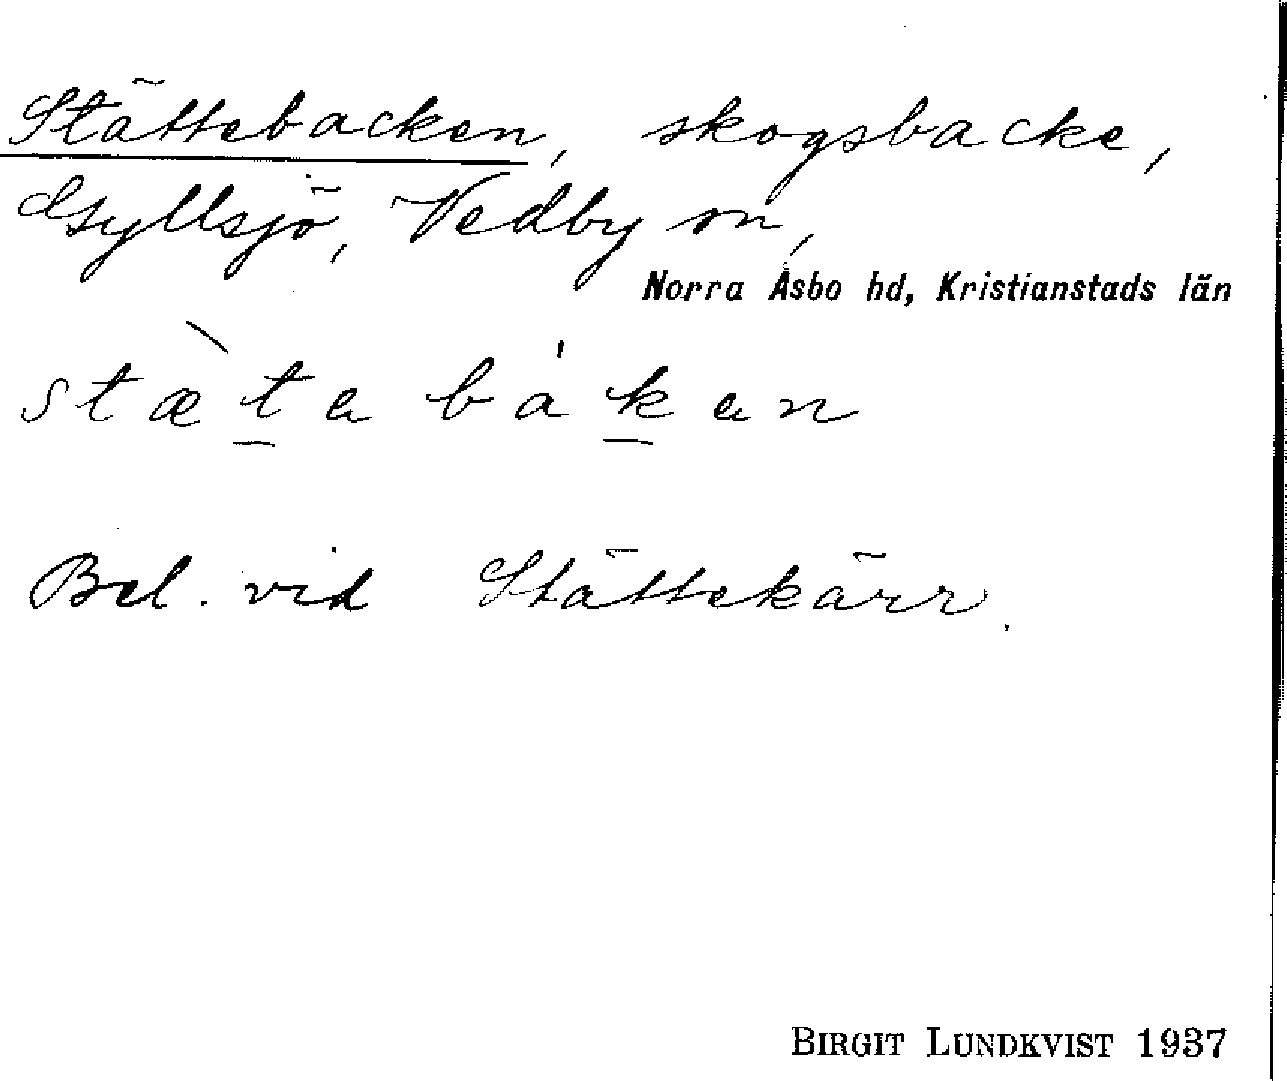 Stättebacken, skogsbacke,
Gyllsjö, Vedby sn,
Norra Åsbo hd, Kristianstads län
stæ̀ta bákan
Bel. vid Stättekärr.
BIRGIT LUNDKVIST 1937